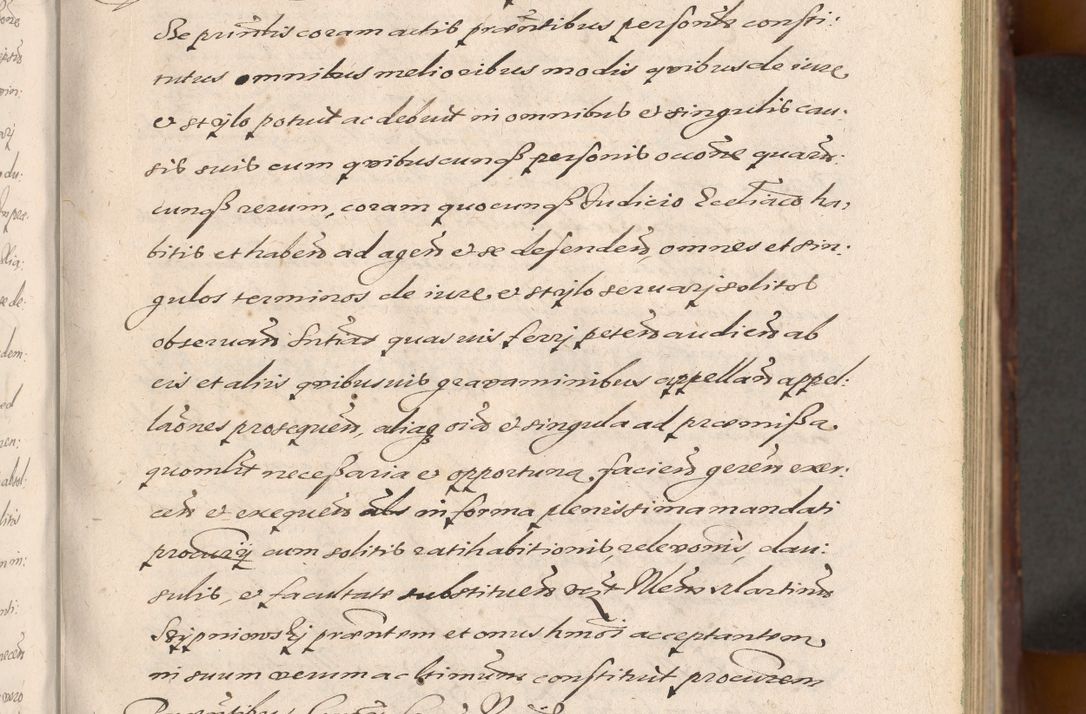 Se prntis coram actis prntibus personlr consti:
tutus omnibus melioribus modis quibus de iure
et stylo potuit ac debuit in omnibus et singulis cau:
sis suis cum quibuscunqß personis occone quarn:
cunqß rerum, coram quocunqß Judicio Ecctiaco ha,
bitis et habend ad agend et se defendend, omnes et sin:
gulos terminos de iure et stylo servarj solitos
observand Sntias quasuis ferrj petend audiend ab
eis et aliis quibusuis gravaminibus appelland appel:
laones prosequend, aliaq oia et singula ad præmißa
quomlit neceßaria et opportuna faciend gerend exer:
cend et exequend in forma plenissima mandati
procurij cum solitis ratihabitionis, relevonis, clau:
sulis, et facultate substituend Martinus
Szypniowskj præntem et onus hmoi acceptantem
in suum verum ac ltimum constituit procurem